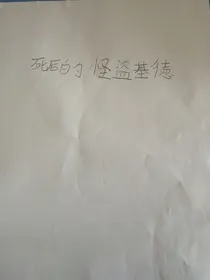 死后的怪盗基德